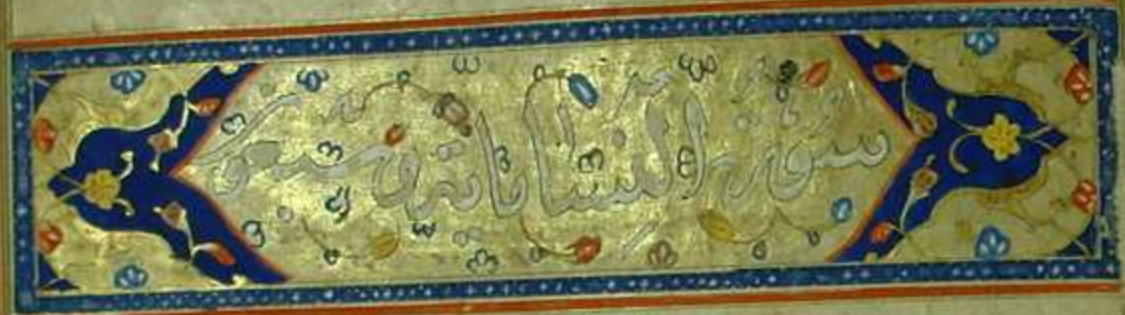 سورة النساء مائة و سبعون